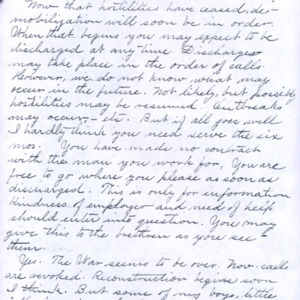 Now that hostilities have ceased, de-
mobilization will soon be in order.
When that begins you may expect to be
discharged at any time. Discharges
may take place in the order of calls.
However, we do not know what may
occur in the future. Not likely, but possibly
hostilities may be resumed. Outbreaks
may occur, - etc. But if all goes well
I hardly think you need serve the six
mos. You have made no contract
with the man you work for. You are
free to go where you please as soon as
discharged. This is only for information
Kindness of employer and need of help
should enter into question. You may
give this to the brethren as you see
them.
Yes. The War seems to be over. Now calls
are revoked. Reconstruction begins soon
I think. But some of my boys, little